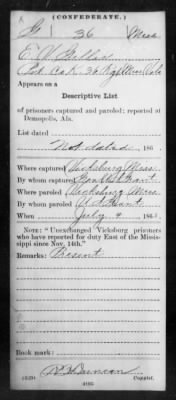 (CONFEDERATE.)
G 36 Miss.
Pvt. Co K, 36
Appears on a
Descriptive List
of prisoners captured and paroled; reported at
Demopolis, Ala.
List dated
Not dated, 186 .
Where captured Vicksburg Miss.
By whom captured Grant
Where paroled Vicksburg Miss.
By whom paroled U S Grant
When July 9 186 .
NOTE: "Unexchanged Vicksburg prisoners
who have reported for duty East of the Missis-
sippi since Nov. 14th."
Remarks: Present
Book mark:
Duncan
Copyist.